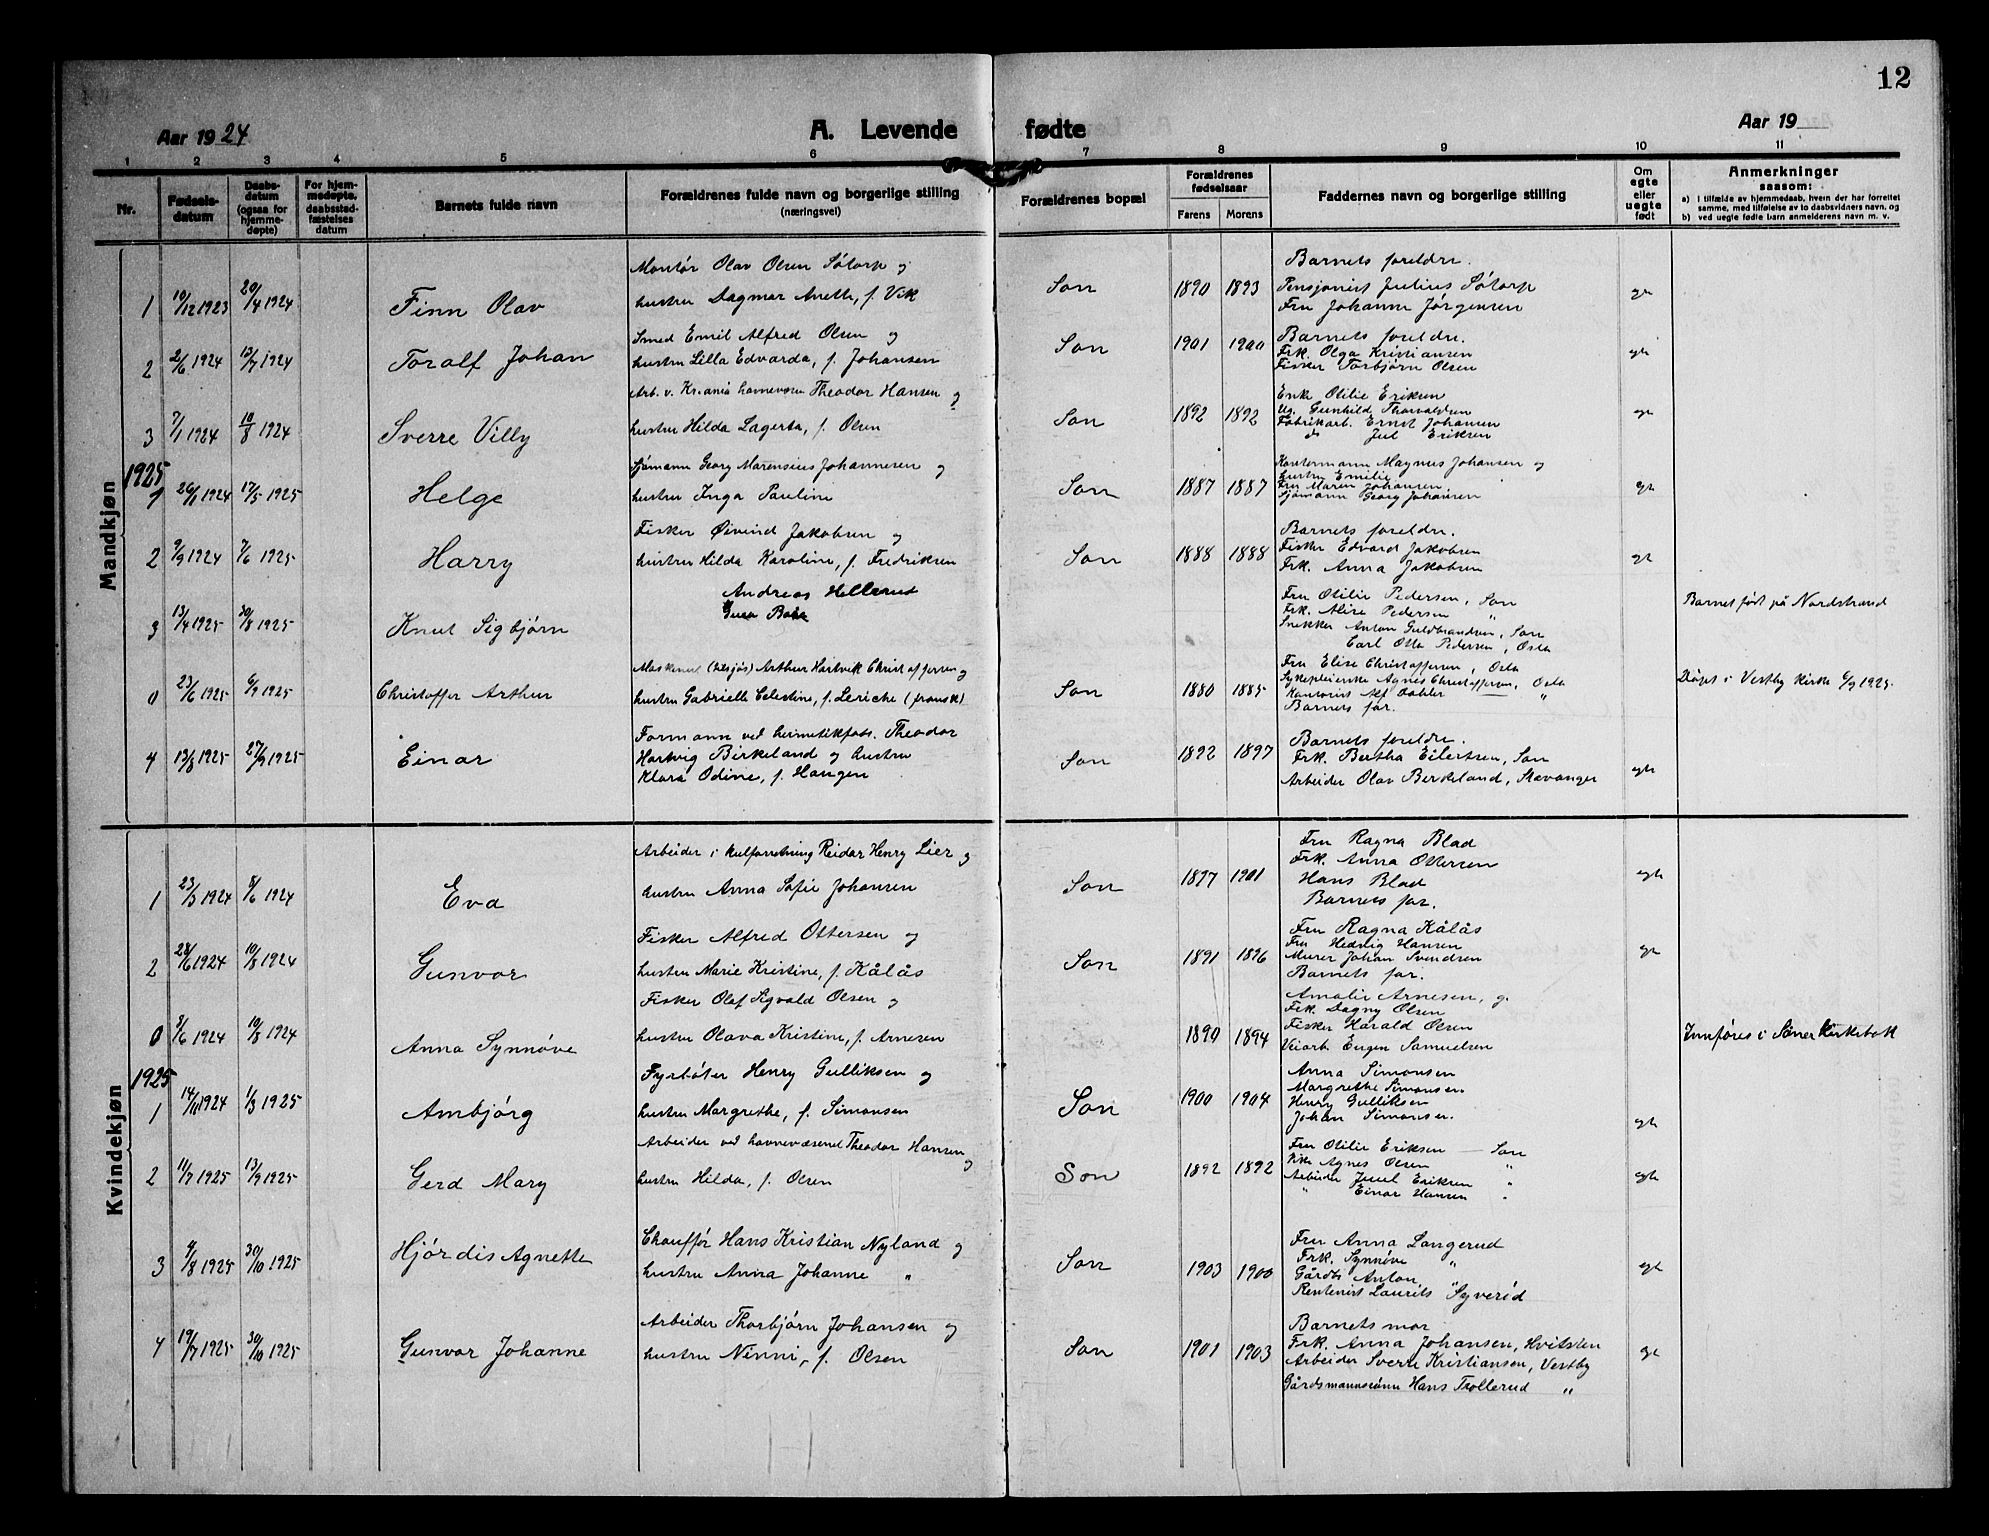 12
Aar 1924
A. Levende fødte
Aar 19
1 2 3 4 5 6 7 8 9 10 11
Nr.
Fødsels-datum
Daabs-datum (ogsaa for hjemme-døpte)
For hjem-medøpte, daabsstad-fæstelses datum
Barnets fulde navn
Forældrenes fulde navn og borgerlige stilling (næringsvei)
Forældrenes bopæl
Forældrenes fødselsaar
Farens Morens
Faddernes navn og borgerlige stilling
Om egte eller uegte født
Anmerkninger saasom:
a) I tilfælde av hjemmedaab, hvem der har forrettet samme, med tilføielse av to daabsvidners navn, og
b) ved uegte fødte barn anmelderens navn m. v.
Mandkjøn
1 10/12 1923 20/4 1924 Finn Olav
Montør Olav Olsen Søtorp og
hustru Dagmar Anette, f. Vik
Son 1890 1893
Barnets foreldre.
Pensjonist Julius Søtorp
Fru Johanne Jørgensen
egte
2 2/6 1924 13/7 1924 Toralf Johan
Smed Emil Alfred Olsen og
hustru Lilla Edvarda, f. Johansen
Son 1901 1900
Barnets foreldre.
Frk. Olga Kristiansen
Fisker Torbjørn Olsen
egte
3 7/1 1924 10/8 1924 Sverre Villy
Arb. v. Kr.ania havnevæsen Theodor Hansen og
hustru Hilda Lagerta, f. Olsen
Son 1892 1892
Enke Otilie Eriksen
Ug. Gunhild Thorvaldsen
Fabrikarb. Ernst Johansen
do Jul Eriksen
egte
1925
1 26/11 1924 17/5 1925 Helge
Sjømann Georg Marensius Johannesen og
hustru Inga Pauline
Son 1887 1887
Kontormann Magnus Johansen og
hustru Emilie
Fru Maren Johansen,
Sjømann Georg Johansen
egte
2 9/9 1924 7/6 1925 Harry
Fisker Øivind Jakobsen og
hustru Hilda Karoline, f. Fredriksen
Son 1888 1888
Barnets foreldre.
Fisker Edvard Jakobsen
Frk. Anna Jakobsen
egte
3 13/4 1925 30/8 1925 Knut Sigbjørn
Andreas Hellerud
Fru Otilie Pedersen, Son
Frk. Alise Pedersen "
Snekker Anton Guldbrandsen, Son
Carl Otto Pedersen, Oslo
Barnet født på Nordstrand
0 23/6 1925 6/9 1925 Christoffer Arthur
Maskinist (tilsjøs) Arthur Hartvik Christoffersen og
hustru Gabrielle Celestine, f. Leriche (fransk)
Son 1880 1885
Fru Elise Christoffersen, Oslo
Sykepleierske Agnes Christoffersen, Oslo
Kontorist Alf Dahler "
Barnets far.
Døpt i Vestby kirke 6/9 1925.
4 13/8 1925 27/9 1925 Einar
Formann ved hermetikfabr. Theodor
Hartvig Birkeland og hustru
Klara Odine, f. Haugen
Son 1892 1897
Barnets foreldre.
Frk. Bertha Eilertsen, Son
Arbeider Olav Berkeland, Stavanger
egte
Kvindekjøn
1 23/3 1924 8/6 1924 Eva
Arbeider i kulforretning Reidar Henry Lier og
hustru Anna Sofie Johansen
Son 1897 1901
Fru Ragna Blad
Frk. Anna Ottersen
Hans Blad
Barnets far.
egte
2 28/6 1924 10/8 1924 Gunvor
Fisker Alfred Ottersen og
hustru Marie Kristine, f. Kålås
Son 1891 1896
Fru Ragna Kålås
Fru Hedvig Hansen
Murer Johan Svendsen
Barnets far.
egte
0 3/6 1924 10/8 1924 Anna Synnøve
Fisker Olaf Sigvald Olsen og
hustru Olava Kristine, f. Arnesen
1890 1894
Amalie Arnesen, g.
Frk. Dagny Olsen
Fisker Harald Olsen
Veiarb. Eugen Samuelsen
Innføres i Saner kirkebok
1925
1 14/11 1924 1/3 1925 Ambjørg
Fyrbøter Henry Gulliksen og
hustru Margrethe, f. Simonsen
Son 1900 1904
Anna Simonsen
Margrethe Simonsen
Henry Gulliksen
Johan Simonsen.
egte
2 11/7 1925 13/9 1925 Gerd Mary
Arbeider ved havnevæsenet Theodor Hansen og
hustru Hilda, f. Olsen
Son 1892 1892
Fru Otilie Eriksen — Son
Frk. Agnes Olsen "
Arbeider Juul Eriksen "
" Einar Hansen "
egte
3 4/8 1925 30/10 1925 Hjørdis Agnette
Chauffør Hans Kristian Nyland og
hustru Anna Johanne "
Son 1903 1900
Fru Anna Langerud
Frk. Synnøve "
Gårdb. Anton "
Rentenist Laurits Syverød
egte
4 19/7 1925 30/10 1925 Gunvor Johanne
Arbeider Thorbjørn Johansen og
hustru Ninni, f. Olsen
Son 1901 1903
Barnets mor
Frk. Anna Johansen, Hvitsten
Arbeider Sverre Kristiansen, Vestby
Gårdsmannssønn Hans Trollerud "
egte